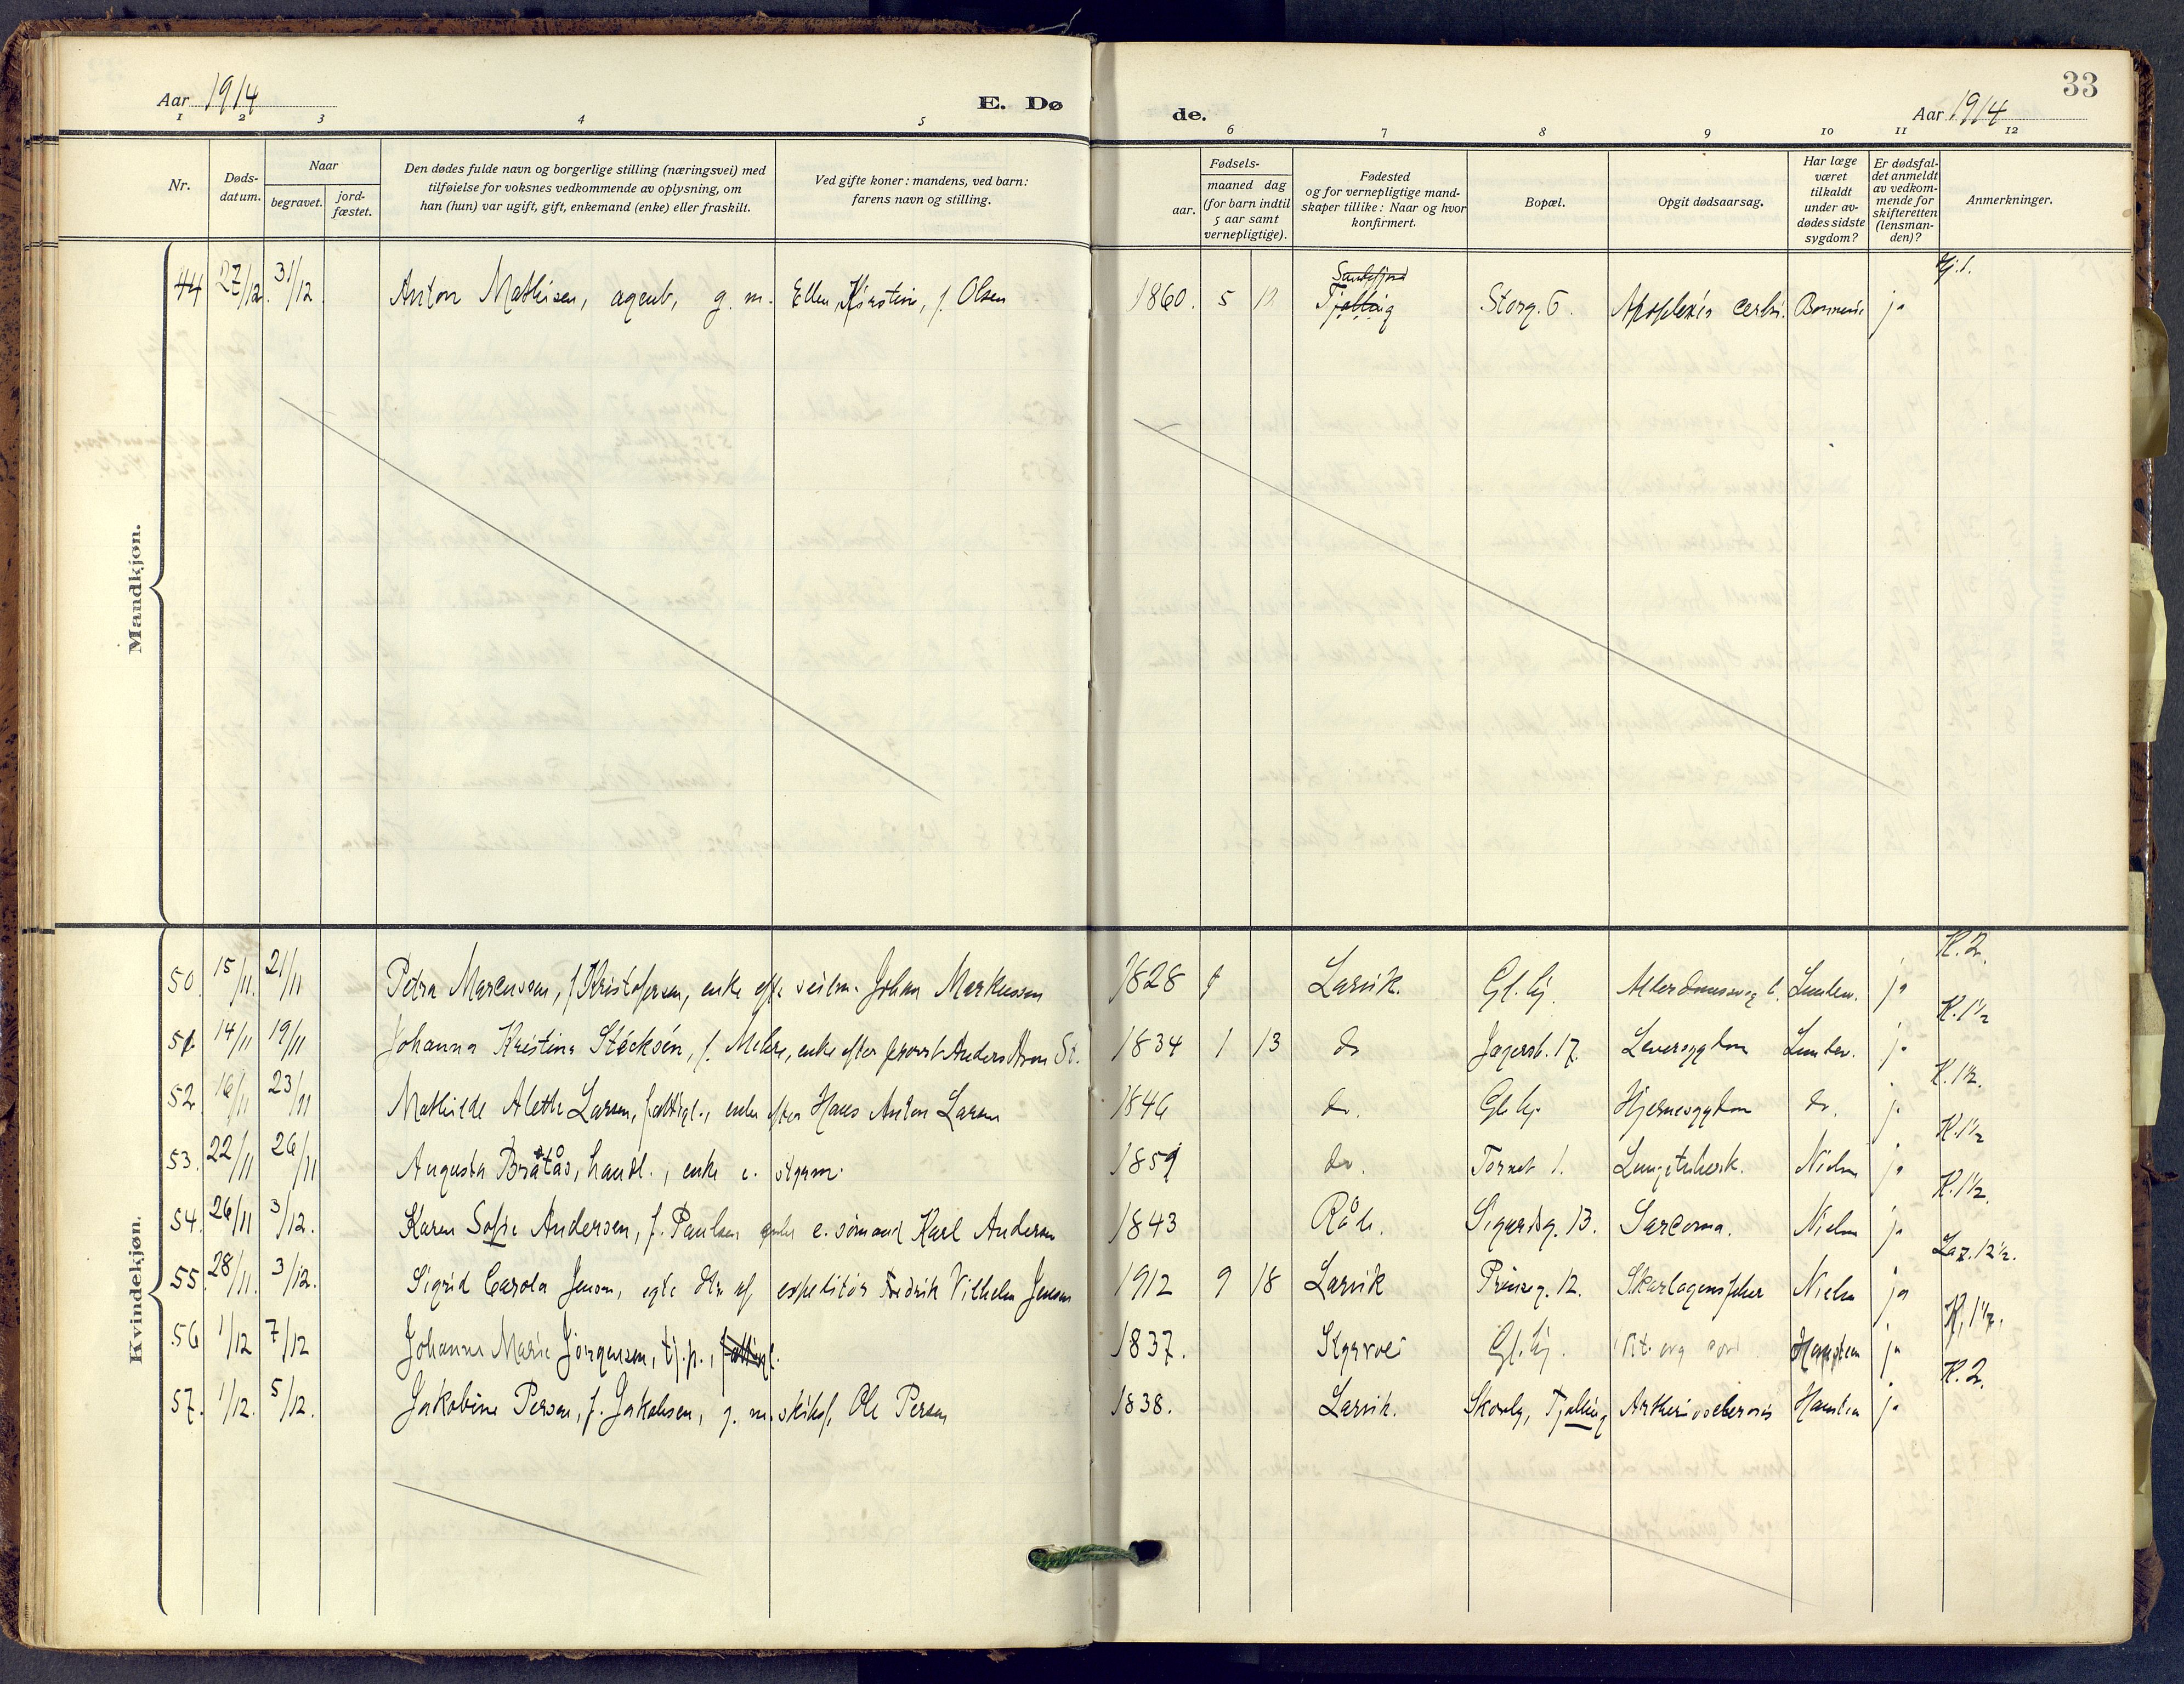 33
Aar 1914
E. Dø
de.
Aar 1914
1 2 3 4 5 6 7 8 9 10 11 12
Nr.
Døds-
datum.
Naar
begravet.
jord-
fæstet.
Den dødes fulde navn og borgerlige stilling (næringsvei) med
tilføielse for voksnes vedkommende av oplysning, om
han (hun) var ugift, gift, enkemand (enke) eller fraskilt.
Ved gifte koner: mandens, ved barn:
farens navn og stilling.
Fødsels-
aar.
maaned dag
(for barn indtil
5 aar samt
vernepligtige).
Fødested
og for vernepligtige mand-
skaper tillike: Naar og hvor
konfirmert.
Bopæl.
Opgit dødsaarsag.
Har læge
været
tilkaldt
under av-
dødes sidste
sygdom?
Er dødsfal-
det anmeldt
av vedkom-
mende for
skifteretten
(lensman-
den)?
Anmerkninger.
Mandkjøn.
Sandefjord
44 27/12. 31/12 Anton Mathisen, agent, g. m. Ellen Kirstine, f. Olsen 1860. 5 Tjølling Storg. 6. Apoplexia cerbri. ja
Kvindekjøn.
K. 2.
50. 15/11. 21/11 Petra Marcussen, f. Kristofersen, enke eft. seilm. Johan Markussen 1828 Larvik. Gl.hj. ja
K. 1½
51. 14/11 19/11 Johanna Kristine Stécksén, f. enke efter provst Anders Aron St. 1834 1 13 do Jegersb. 17. Leversygdom ja
K. 1½.
52. 16/11 23/11 Mathilde Alethe Larsen, fattigl., enke efter Hans Anton Larsen 1846 do. Gl.hj. Hjernesygdom do. ja
K. 1½
53. 22/11 26/11 Augusta Bråtås, handl., enke e. 1859 do. Torvet 1. Lungetuberk. Nielsen ja
K. 1½.
54. 26/11 3/12. Karen Sofie Andersen, f. Paulsen enke e. sömand Karl Andersen 1843 Råde. Sigurdsg. 13. Sarcoma. Nielsen ja
Laz. 12½.
55. 28/11. 3/12. Sigrid Carola Jensen, egte dtr. af expeditör Fredrik Vilhelm Jensen 1912 9 18 Larvik Prinseg. 12. Skarlagensfeber Nielsen ja
K. 1½.
56 1/12 7/12 Johanne Marie Jörgensen, tj.p., fattigl. 1837. Gl.hj. Vit. org. cord. ja
K. 2.
57. 1/12. 5/12. Jakobine Persen, f. Jakobsen, g. m. skibsf. Ole Persen 1838. Larvik. Tjølling ja